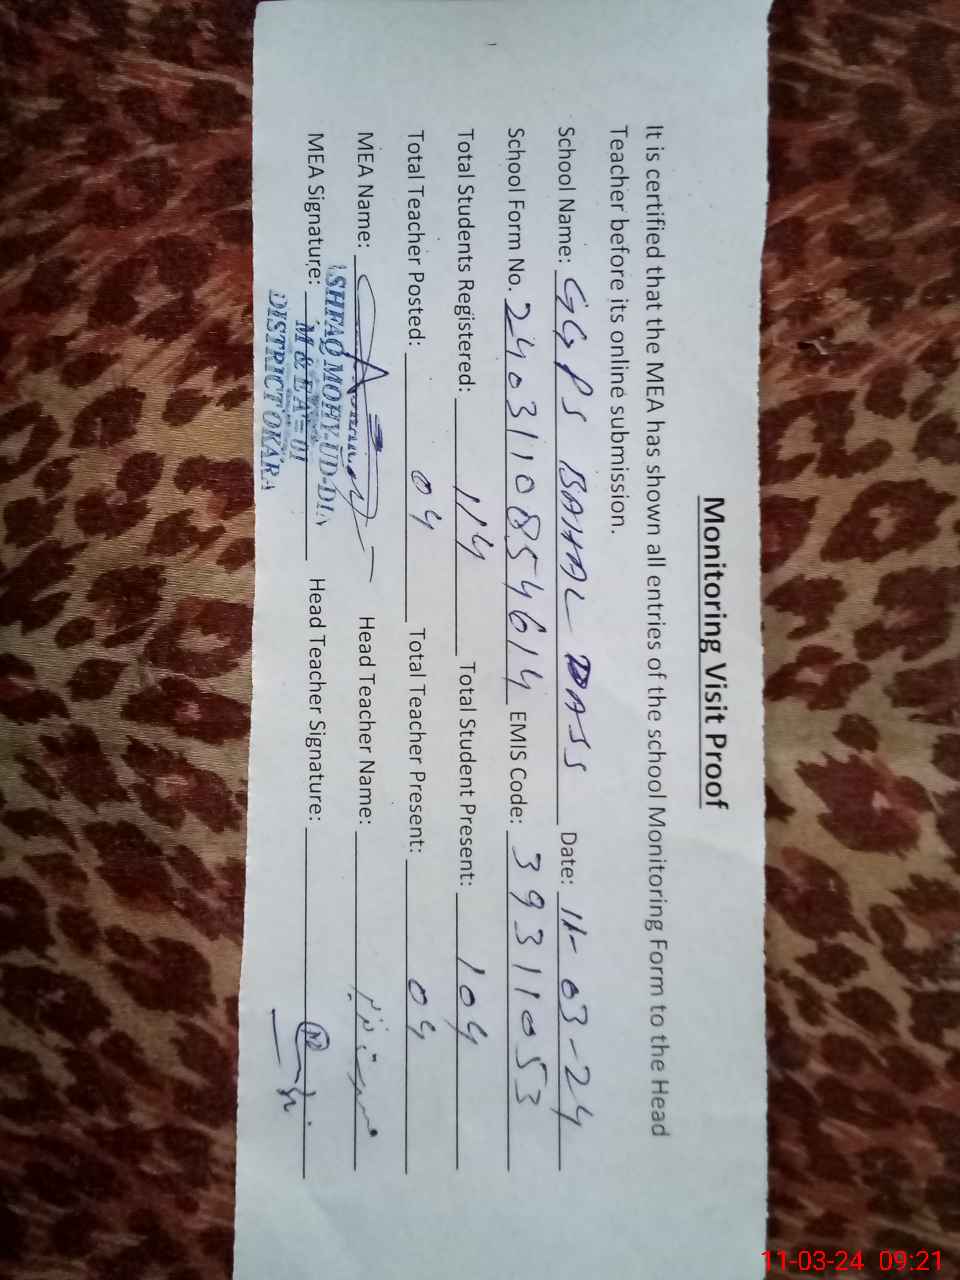 Monitoring Visit Proof
It is certified that the MEA has shown all entries of the school Monitoring Form to the Head
Teacher before its online submission.
School Name: GGPS BAHAL DASS Date: 11-03-24
School Form No. 2403110854614 EMIS Code: 39311053
Total Students Registered: 114 Total Student Present: 104
Total Teacher Posted: 04 Total Teacher Present: 04
MEA Name: Head Teacher Name:
MEA Signature: Head Teacher Signature:
ASHFAQ MOHY-UD-DIN
M & E A-01
DISTRICT OKARA
11-03-24 09:21